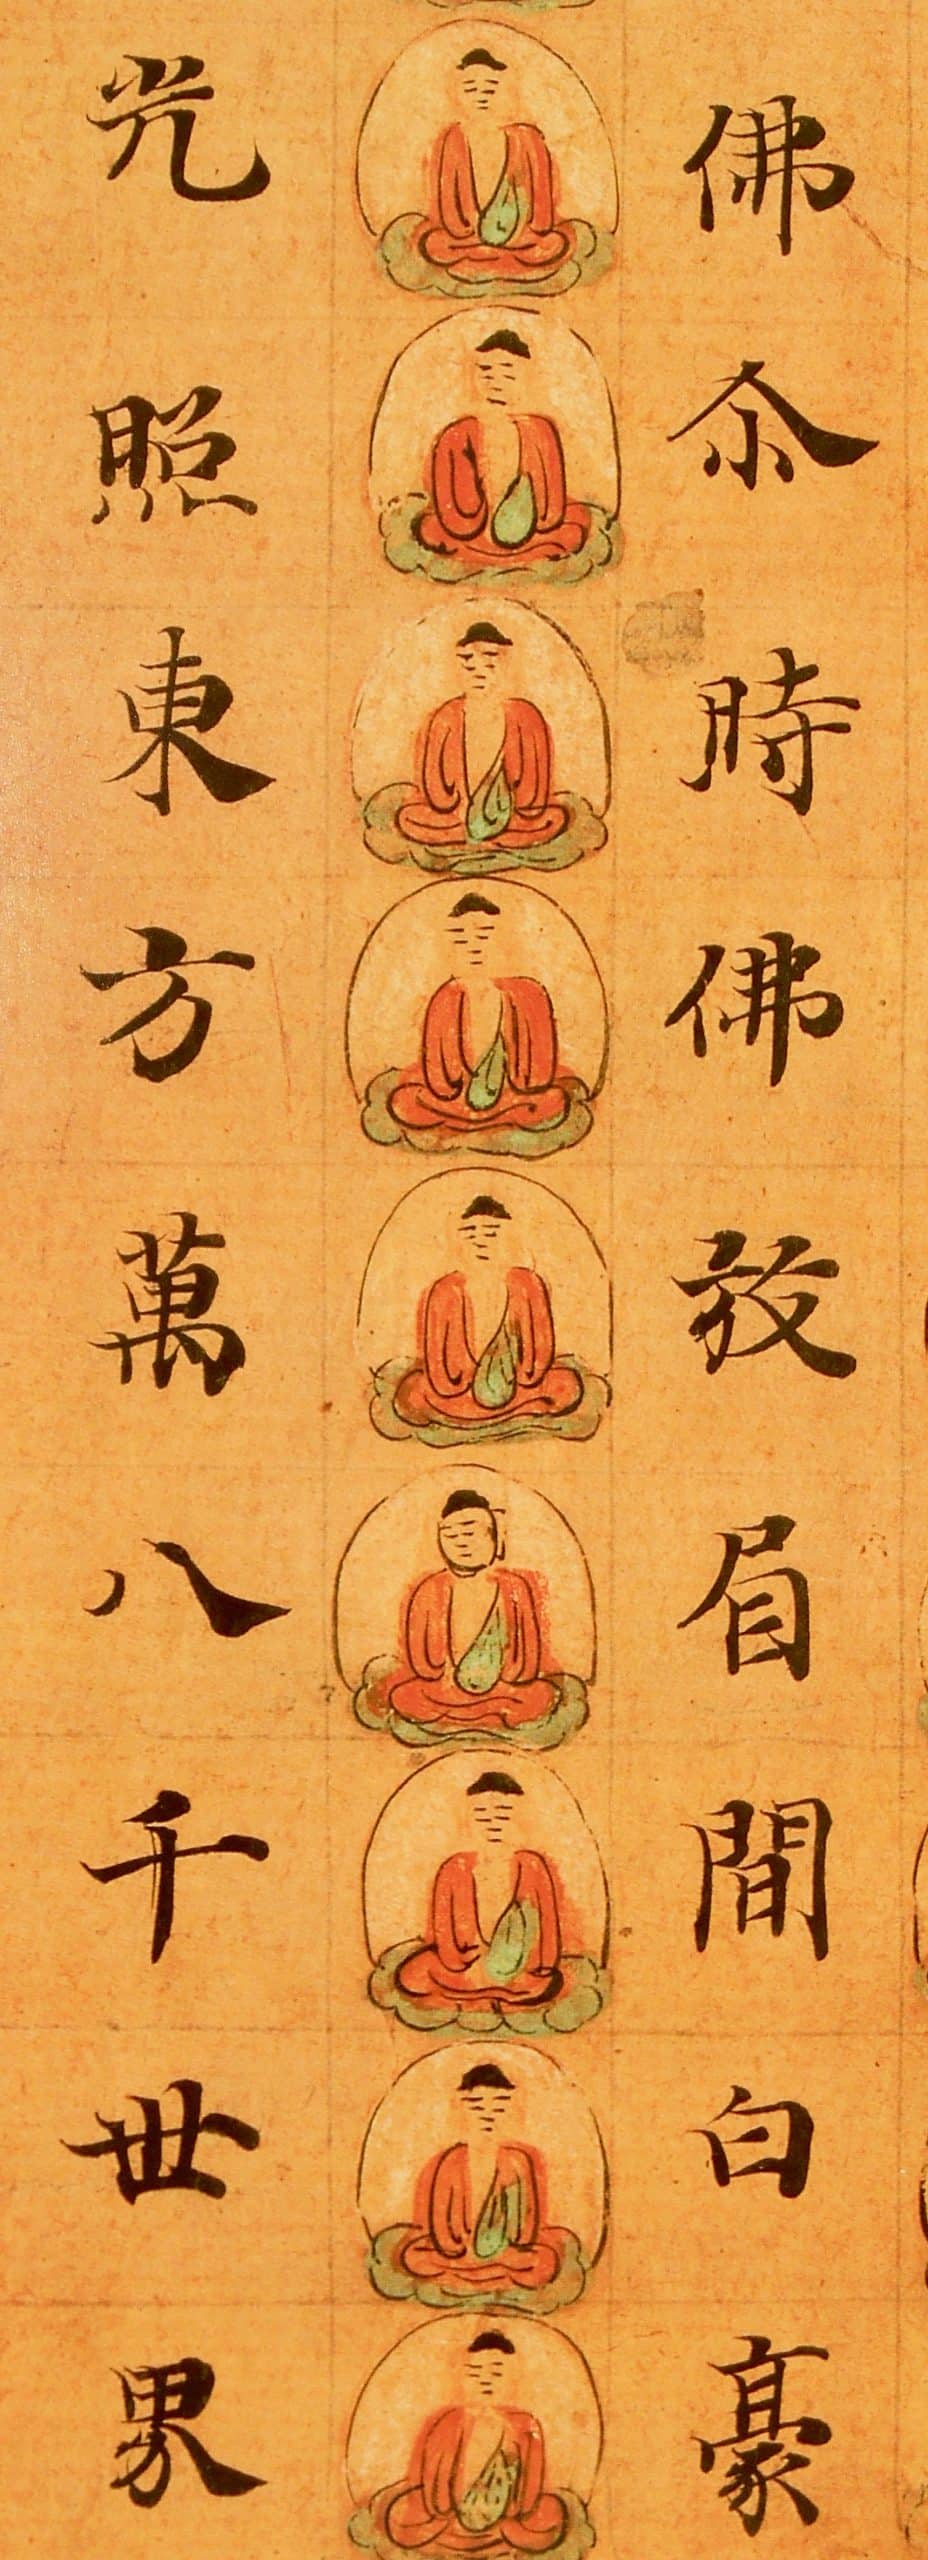 佛尒時佛放眉間白豪
光照東方萬八千世界